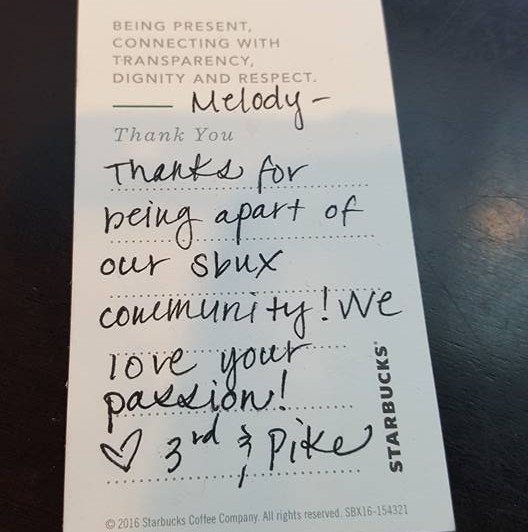 BEING PRESENT,
CONNECTING WITH
TRANSPARENCY,
DIGNITY AND RESPECT.
Melody-
Thank You
Thanks for
being apart of
our sbux
community! We
love your
passion!
♡ 3rd & Pike
STARBUCKS®
© 2016 Starbucks Coffee Company. All rights reserved. SBX16-154321